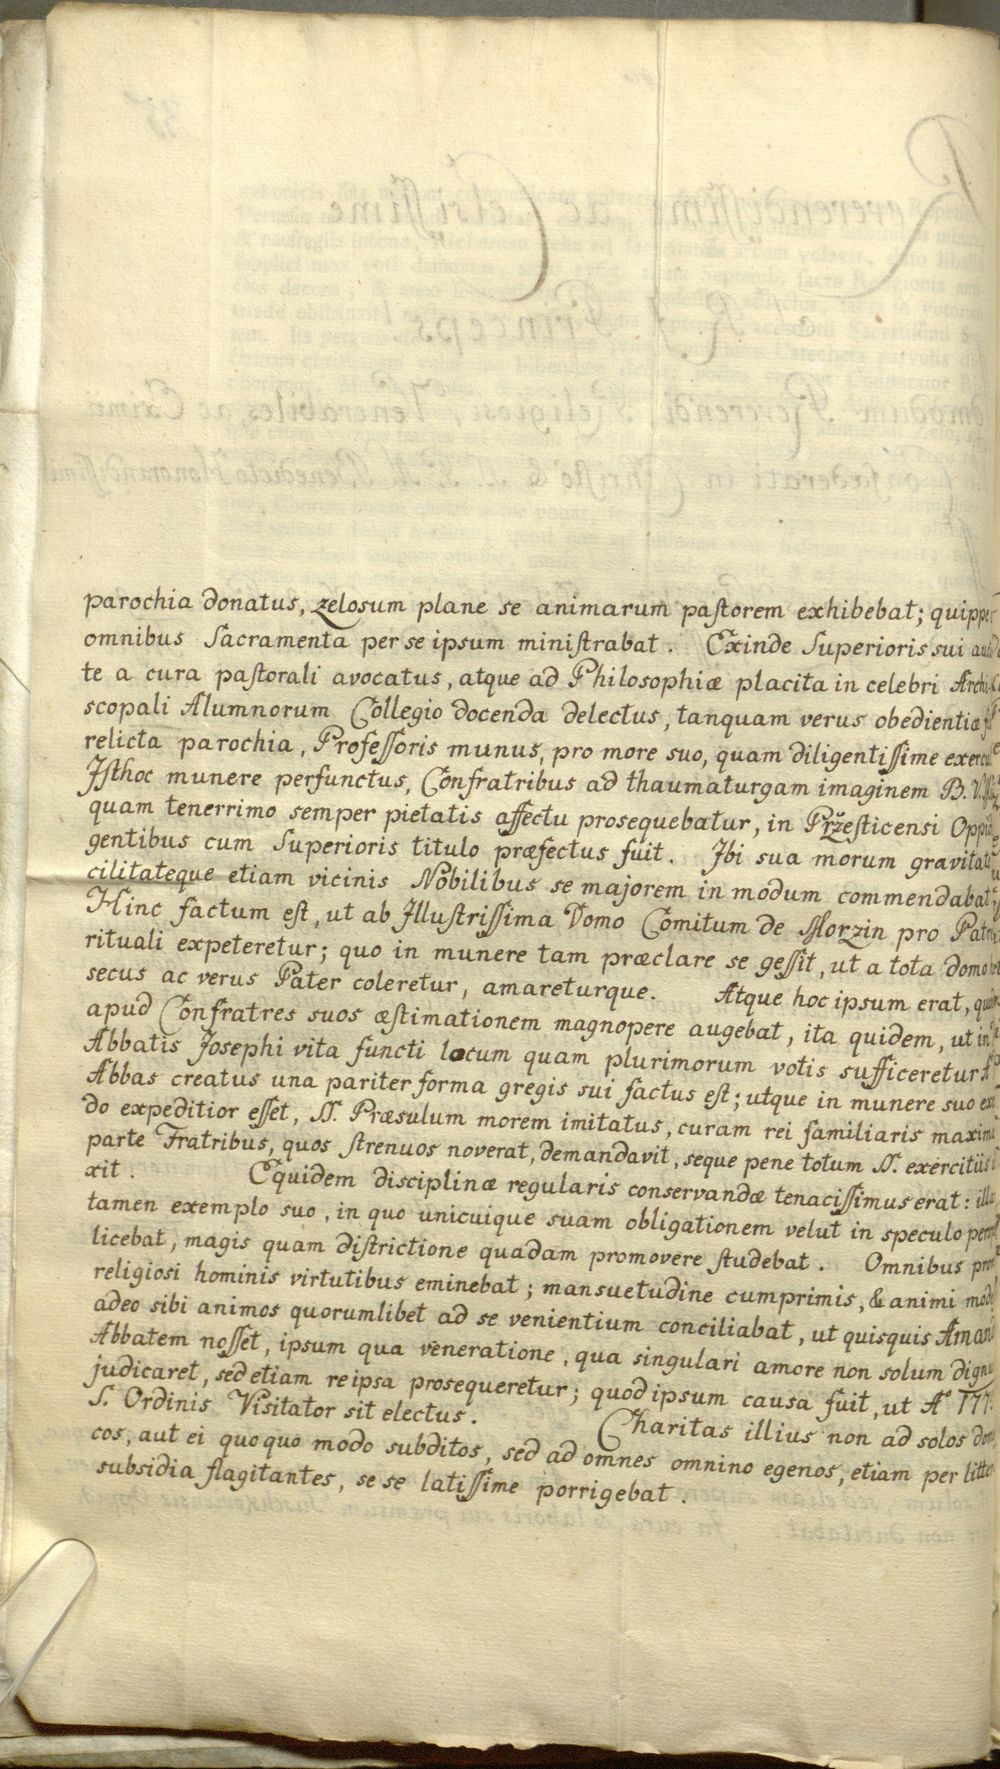 parochia donatus, zelosum plane se animarum pastorem exhibebat; quippe
omnibus Sacramenta per se ipsum ministrabat. Exinde Superioris sui
te a cura pastorali avocatus, atque ad Philosophiæ placita in celebri Archi
scopali Alumnorum Collegio docenda delectus, tanquam verus obedientiæ
relicta parochia, Professoris munus, pro more suo, quam diligentissime exercu
Isthoc munere perfunctus, Confratribus ad thaumaturgam imaginem B. V.
quam tenerrimo semper pietatis affectu prosequebatur, in Pržesticensi Oppid
gentibus cum Superioris titulo præfectus fuit. Ibi sua morum gravitate
cilitateque etiam vicinis Nobilibus se majorem in modum commendabat.
Hinc factum est, ut ab Illustrissima Domo Comitum de Morzin pro Patre
rituali expeteretur; quo in munere tam præclare se gessit, ut a tota domo
secus ac verus Pater coleretur, amareturque. Atque hoc ipsum erat,
apud Confratres suos æstimationem magnopere augebat, ita quidem, ut in
Abbatis Josephi vita functi locum quam plurimorum votis sufficeretur.
Abbas creatus una pariter forma gregis sui factus est; utque in munere suo
do expeditior esset, SS. Præsulum morem imitatus, curam rei familiaris maxima
parte Fratribus, quos strenuos noverat, demandavit, seque pene totum SS. exercitiis
xit. Equidem disciplinæ regularis conservandæ tenacissimus erat: illa
tamen exemplo suo, in quo unicuique suam obligationem velut in speculo
licebat, magis quam districtione quadam promovere studebat. Omnibus
religiosi hominis virtutibus eminebat; mansuetudine cumprimis, & animi mode
adeo sibi animos quorumlibet ad se venientium conciliabat, ut quisquis Aman
Abbatem nosset, ipsum qua veneratione, qua singulari amore non solum dignu
judicaret, sed etiam reipsa prosequeretur; quod ipsum causa fuit, ut Aº 177
S. Ordinis Visitator sit electus. Charitas illius non ad solos
cos, aut ei quoquo modo subditos, sed ad omnes omnino egenos, etiam per litte
subsidia flagitantes, se se latissime porrigebat.